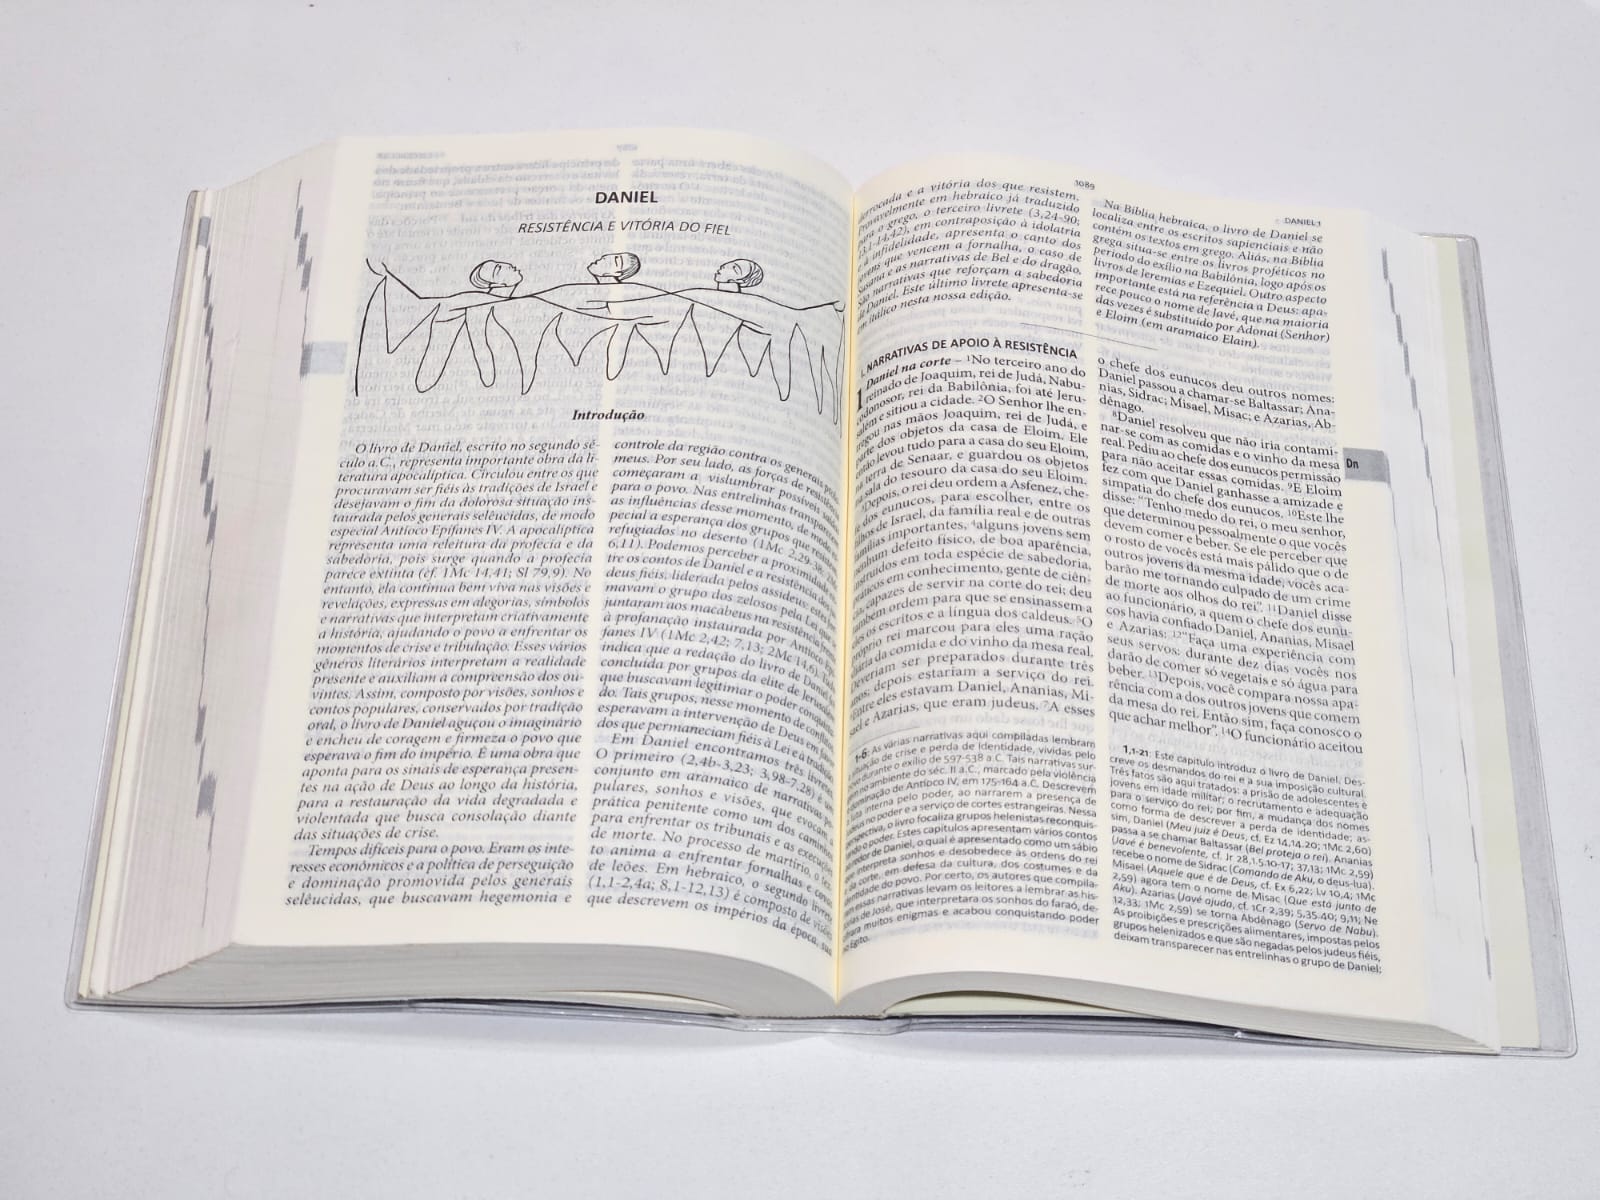 DANIEL
RESISTÊNCIA E VITÓRIA DO FIEL
Introdução
O livro de Daniel, escrito no segundo sé-
culo a.C., representa importante obra da li-
teratura apocalíptica. Circulou entre os que
procuravam ser fiéis às tradições de Israel e
desejavam o fim da dolorosa situação ins-
taurada pelos generais selêucidas, de modo
especial Antíoco Epífanes IV. A apocalíptica
representa uma releitura da profecia e da
sabedoria, pois surge quando a profecia
parece extinta (cf. 1Mc 14,41; Sl 79,9). No
entanto, ela continua bem viva nas visões e
revelações, expressas em alegorias, símbolos
e narrativas que interpretam criativamente
a história, ajudando o povo a enfrentar os
momentos de crise e tribulação. Esses vários
gêneros literários interpretam a realidade
presente e auxiliam a compreensão dos ou-
vintes. Assim, composto por visões, sonhos e
contos populares, conservados por tradição
oral, o livro de Daniel aguçou o imaginário
e encheu de coragem e firmeza o povo que
esperava o fim do império. É uma obra que
aponta para os sinais de esperança presen-
tes na ação de Deus ao longo da história,
para a restauração da vida degradada e
violentada que busca consolação diante
das situações de crise.
Tempos difíceis para o povo. Eram os inte-
resses econômicos e a política de perseguição
e dominação promovida pelos generais
selêucidas, que buscavam hegemonia e
controle da região contra os generais
meus. Por seu lado, as forças de
começaram a vislumbrar possíveis
para o povo. Nas entrelinhas
as influências desse momento, de modo
pecial a esperança dos grupos que
refugiados no deserto (1Mc 2,29-38;
6,11). Podemos perceber a proximidade
tre os contos de Daniel e a resistência
deus fiéis, liderada pelos assideus:
mavam o grupo dos zelosos pela Lei que
juntaram aos macabeus na resistência
à profanação instaurada por Antíoco
fanes IV (1Mc 2,42; 7,13; 2Mc 14,6).
indica que a redação do livro de Daniel
concluída por grupos da elite de
que buscavam legitimar o poder
do. Tais grupos, nesse momento de
esperavam a intervenção de Deus em
dos que permaneciam fiéis à Lei e à
Em Daniel encontramos três livretes.
O primeiro (2,4b-3,23; 3,98-7,28) é um
conjunto em aramaico de narrativas
pulares, sonhos e visões, que evocam a
prática penitente como um dos caminhos
para enfrentar os tribunais e as
de morte. No processo de martírio, o
to anima a enfrentar fornalhas e
de leões. Em hebraico, o segundo livrete
(1,1-2,4a; 8,1-12,13) é composto de visões
que descrevem os impérios da época,
1089
DANIEL 1
e a vitória dos que resistem.
Provavelmente em hebraico já traduzido
para o grego, o terceiro livrete (3,24-90;
em contraposição à idolatria
e à infidelidade, apresenta o canto dos
jovens que vencem a fornalha, o caso de
Susana e as narrativas de Bel e do dragão.
São narrativas que reforçam a sabedoria
de Daniel. Este último livrete apresenta-se
em itálico nesta nossa edição.
Na Bíblia hebraica, o livro de Daniel se
localiza entre os escritos sapienciais e não
contém os textos em grego. Aliás, na Bíblia
grega situa-se entre os livros proféticos no
período do exílio na Babilônia, logo após os
livros de Jeremias e Ezequiel. Outro aspecto
importante está na referência a Deus: apa-
rece pouco o nome de Javé, que na maioria
das vezes é substituído por Adonai (Senhor)
e Eloim (em aramado Elain).
I. NARRATIVAS DE APOIO À RESISTÊNCIA
1 Daniel na corte – 1No terceiro ano do
reinado de Joaquim, rei de Judá, Nabu-
codonosor, rei da Babilônia, foi até Jeru-
salém e sitiou a cidade. 2O Senhor lhe en-
tregou nas mãos Joaquim, rei de Judá, e
parte dos objetos da casa de Eloim. Ele
então levou tudo para a casa do seu Eloim,
na terra de Senaar, e guardou os objetos
na sala do tesouro da casa do seu Eloim.
3Depois, o rei deu ordem a Asfenez, che-
fe dos eunucos, para escolher, entre os
filhos de Israel, da família real e de outras
famílias importantes, 4alguns jovens sem
nenhum defeito físico, de boa aparência,
instruídos em toda espécie de sabedoria,
práticos em conhecimento, gente de ciên-
cia, capazes de servir na corte do rei; deu
também ordem para que se ensinassem a
eles os escritos e a língua dos caldeus. 5O
próprio rei marcou para eles uma ração
diária da comida e do vinho da mesa real.
Deveriam ser preparados durante três
anos; depois estariam a serviço do rei.
6Entre eles estavam Daniel, Ananias, Mi-
sael e Azarias, que eram judeus. 7A esses
o chefe dos eunucos deu outros nomes:
Daniel passou a chamar-se Baltassar; Ana-
nias, Sidrac; Misael, Misac; e Azarias, Ab-
dênago.
8Daniel resolveu que não iria contami-
nar-se com as comidas e o vinho da mesa
real. Pediu ao chefe dos eunucos permissão
para não aceitar essas comidas. 9E Eloim
fez com que Daniel ganhasse a amizade e
simpatia do chefe dos eunucos. 10Este lhe
disse: “Tenho medo do rei, o meu senhor,
que determinou pessoalmente o que vocês
devem comer e beber. Se ele perceber que
o rosto de vocês está mais pálido que o de
outros jovens da mesma idade, vocês aca-
barão me tornando culpado de um crime
de morte aos olhos do rei”. 11Daniel disse
ao funcionário, a quem o chefe dos eunu-
cos havia confiado Daniel, Ananias, Misael
e Azarias: 12“Faça uma experiência com
seus servos: durante dez dias vocês nos
darão de comer só vegetais e só água para
beber. 13Depois, você compara nossa apa-
rência com a dos outros jovens que comem
da mesa do rei. Então sim, faça conosco o
que achar melhor”. 14O funcionário aceitou
Dn
1-6: As várias narrativas aqui compiladas lembram
a situação de crise e perda de identidade, vividas pelo
povo durante o exílio de 597-538 a.C. Tais narrativas sur-
gem no ambiente do séc. II a.C., marcado pela violência
e dominação de Antíoco IV, em 175-164 a.C. Descrevem
a luta interna pelo poder, ao narrarem a presença de
judeus no poder e a serviço de cortes estrangeiras. Nessa
perspectiva, o livro focaliza grupos helenistas reconquis-
tando o poder. Estes capítulos apresentam vários contos
ao redor de Daniel, o qual é apresentado como um sábio
que interpreta sonhos e desobedece às ordens do rei
e da corte, em defesa da cultura, dos costumes e da
identidade do povo. Por certo, os autores que compila-
ram essas narrativas levam os leitores a lembrar as his-
tórias de José, que interpretara os sonhos do faraó, de-
cifrara muitos enigmas e acabou conquistando poder
no Egito.
1,1-21: Este capítulo introduz o livro de Daniel. Des-
creve os desmandos do rei e a sua imposição cultural.
Três fatos são aqui tratados: a prisão de adolescentes e
jovens em idade militar; o recrutamento e adequação
para o serviço do rei; por fim, a mudança dos nomes
como forma de descrever a perda de identidade; as-
sim, Daniel (Meu juiz é Deus, cf. Ez 14,14.20; 1Mc 2,60)
passa a se chamar Baltassar (Bel proteja o rei). Ananias
(Javé é benevolente, cf. Jr 28,1.5.10-17; 37,13; 1Mc 2,59)
recebe o nome de Sidrac (Comando de Aku, o deus-lua).
Misael (Aquele que é de Deus, cf. Ex 6,22; Lv 10,4; 1Mc
2,59) agora tem o nome de Misac (Que está junto de
Aku). Azarias (Javé ajuda, cf. 1Cr 2,39; 5,35-40; 9,11; Ne
12,33; 1Mc 2,59) se torna Abdênago (Servo de Nabu).
As proibições e prescrições alimentares, impostas pelos
grupos helenizados e que são negadas pelos judeus fiéis,
deixam transparecer nas entrelinhas o grupo de Daniel;